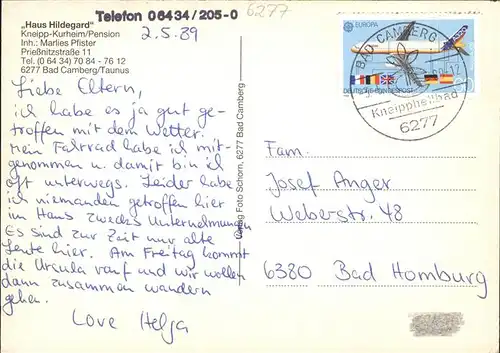 „Haus Hildegard"
Kneipp-Kurheim/Pension
Inh.: Marlies Pfister
Prießnitzstraße 11
Tel. (0 64 34) 70 84 - 76 12
6277 Bad Camberg/Taunus
Telefon 06434/205-0
6277
2.5.89
Liebe Eltern,
ich habe es ja gut ge-
troffen mit dem Wetter.
Mein Fahrrad habe ich mit-
genommen u. damit bin ich
oft unterwegs. Leider habe
ich niemanden getroffen hier
im Haus zwecks Unternehmungen
Es sind zur Zeit nur alte
Leute hier. Am Freitag kommt
die Ursula rauf und wir wollen
dann zusammen wandern
gehen.
Love Helga
Verlag Foto Schorn, 6277 Bad Camberg
EUROPA
DEUTSCHE BUNDESPOST
BAD CAMBERG
Kneippheilbad
6277
Fam.
Josef Anger
Weberstr. 48
6380 Bad Homburg